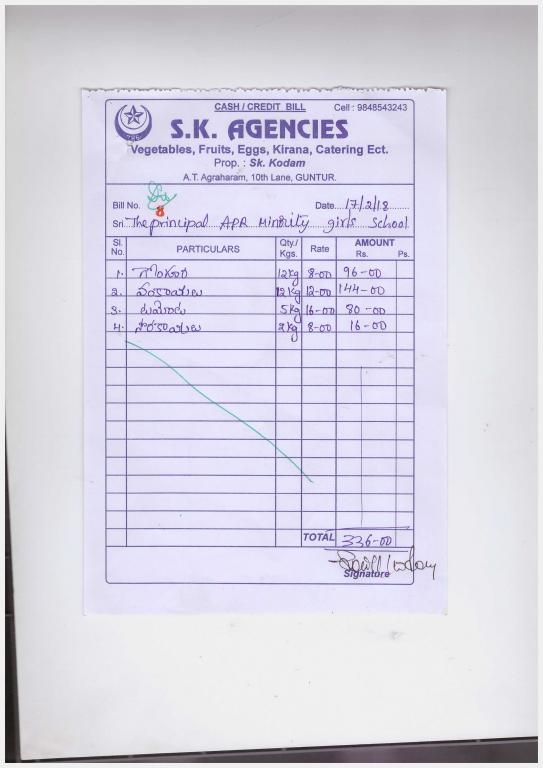 CASH / CREDIT BILL Cell : 9848543243
S.K. AGENCIES
Vegetables, Fruits, Eggs, Kirana, Catering Ect.
Prop. : Sk. Kodam
A.T. Agraharam, 10th Lane, GUNTUR.
Bill No. 8 Date 17/2/18
Sri The principal APR Minority girls School
Sl. No. PARTICULARS Qty./ Kgs. Rate AMOUNT Rs. Ps.
1. 12kg 8-00 96-00
2. వంకాయలు 12kg 12-00 144-00
3. టమోటా 5kg 16-00 80-00
4. 2kg 8-00 16-00
TOTAL 336-00
Signature